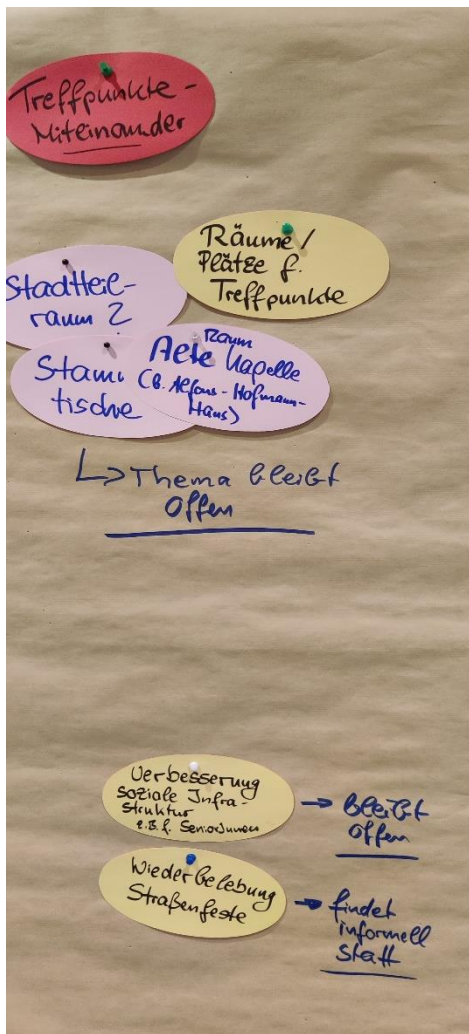 Treffpunkte -
Miteinander
Räume /
Plätze f.
Treffpunkte
Stadtteil-
raum 2
Stamm
tische
Raum
Alte Kapelle
(b. Alfons-Hofmann-
Haus)
↳ Thema bleibt
Offen
Verbesserung
soziale Infra-
struktur
z.B. f. Senior:innen
→ bleibt
offen
Wiederbelebung
Straßenfeste
→ findet
informell
statt